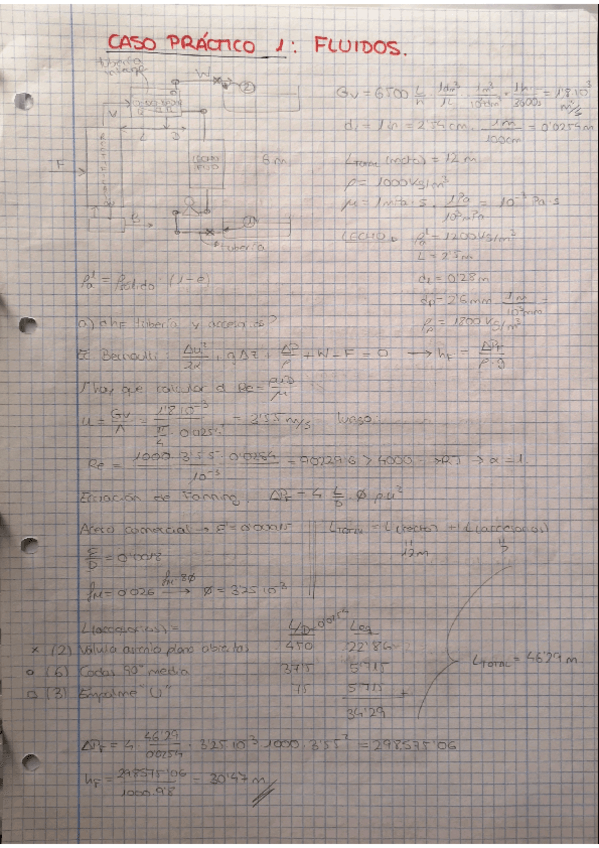 CASO PRÁCTICO 1: FLUIDOS.
tubería
W
2
V
L
D
F
6m
1
tubería
Gv = 6500 L/h · 1dm³/1L · 1m³/10³dm³ · 1h/3600s = 1'8·10⁻³ m³/s
di = 1in = 2'54cm · 1m/100cm = 0'0254m
Ltotal (recto) = 12m
ρ = 1000 Kg/m³
μ = 1mPa·s · 1Pa/10³mPa = 10⁻³ Pa·s
LECHO
= 1200 Kg/m³
L = 2'5m
di = 0'23m
dp = 2'6mm · 1m/10³mm =
ρp = 1200 Kg/m³
a) ¿hF tubería y accesorios?
Ec Bernoulli: Δu²/2α + gΔz + ΔP/ρ + W - F = 0 → hF = ΔPF/ρ·g
hay que calcular el Re = ρuD/μ
u = Gv/A = 1'8·10⁻³/(π/4 · 0'0254²) = 3'55 m/s luego:
Re = 1000·3'55·0'0254/10⁻³ = 90229'6 > 4000 → RT → α = 1
Ecuación de Fanning: ΔPF = 4 L/D · Ø ρu²
Acero comercial → E = 0'00015
E/D = 0'0018
fM = 0'026 → Ø = 3'25·10⁻³
fM = 8Ø
Ltotal = L(recto) + L(accesorios)
12m ?
L(accesorios) = L/D Leq
x (2) Válvula asiento, plano abiertas 450 22'86
o (6) Codos 90° medio 37'5 5'715
□ (3) Empalme "U" 75 5'715
34'29
Ltotal = 46'29 m
ΔPF = 4 · 46'29/0'0254 · 3'25·10⁻³ · 1000 · 3'55² = 298575'06
hF = 298575'06/1000·9'8 = 30'47 m